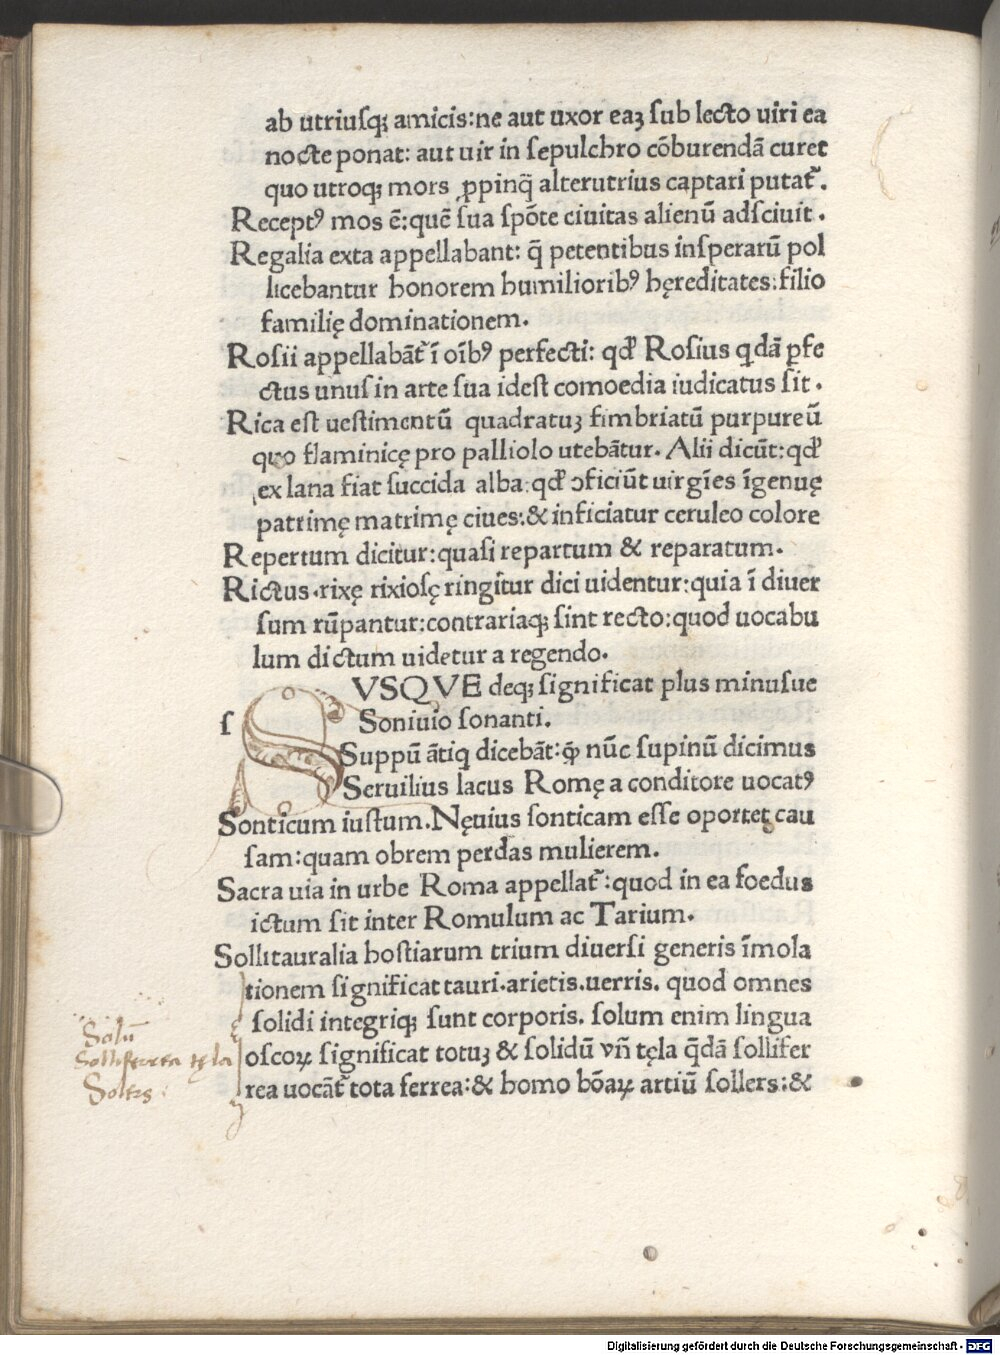 ab utriusq; amicis: ne aut uxor eaꝫ sub lecto uiri ea
nocte ponat: aut uir in sepulchro cōburendā curet
quo utroq; mors ꝓpinq̄ alterutrius captari putat᷑.
Receptꝰ mos ē: quē sua spōte ciuitas alienū adsciuit.
Regalia exta appellabant: q̄ petentibus insperarū pol
licebantur honorem humilioribꝰ hęreditates: filio
familię dominationem.
Rosii appellabāt᷑ ī oībꝰ perfecti: qđ Rosius qdā ꝑfe
ctus unus in arte sua idest comoedia iudicatus sit.
Rica est uestimentū quadratuꝫ fimbriatū purpureū
quo flaminicę pro palliolo utebātur. Alii dicūt: qđ
ex lana fiat succida alba: qđ ↄficiūt uirgīes īgenuę
patrimę matrimę ciues: & inficiatur ceruleo colore
Repertum dicitur: quasi repartum & reparatum.
Rictus. rixę rixiosę ringītur dici uidentur: quia ī diuer
sum rūpantur: contrariaq; sint recto: quod uocabu
lum dictum uidetur a regendo.
SVSQVE deq; significat plus minusue
s Soniuio sonanti.
Suppū ātiq dicebāt: ꝙ nūc supinū dicimus
Seruilius lacus Romę a conditore uocatꝰ
Sonticum iustum. Nęuius sonticam esse oportet cau
sam: quam obrem perdas mulierem.
Sacra uia in urbe Roma appellat᷑: quod in ea foedus
ictum sit inter Romulum ac Tarium.
Sollitauralia hostiarum trium diuersi generis īmola
tionem significat tauri. arietis. uerris. quod omnes
solidi integriq; sunt corporis. solum enim lingua
oscoꝝ significat totuꝫ & solidū vñ tęla qdā sollifer
rea uocāt᷑ tota ferrea: & homo bōaꝝ artiū sollers: &
Solū
Solliferrea tęla
Solers
Digitalisierung gefördert durch die Deutsche Forschungsgemeinschaft - DFG